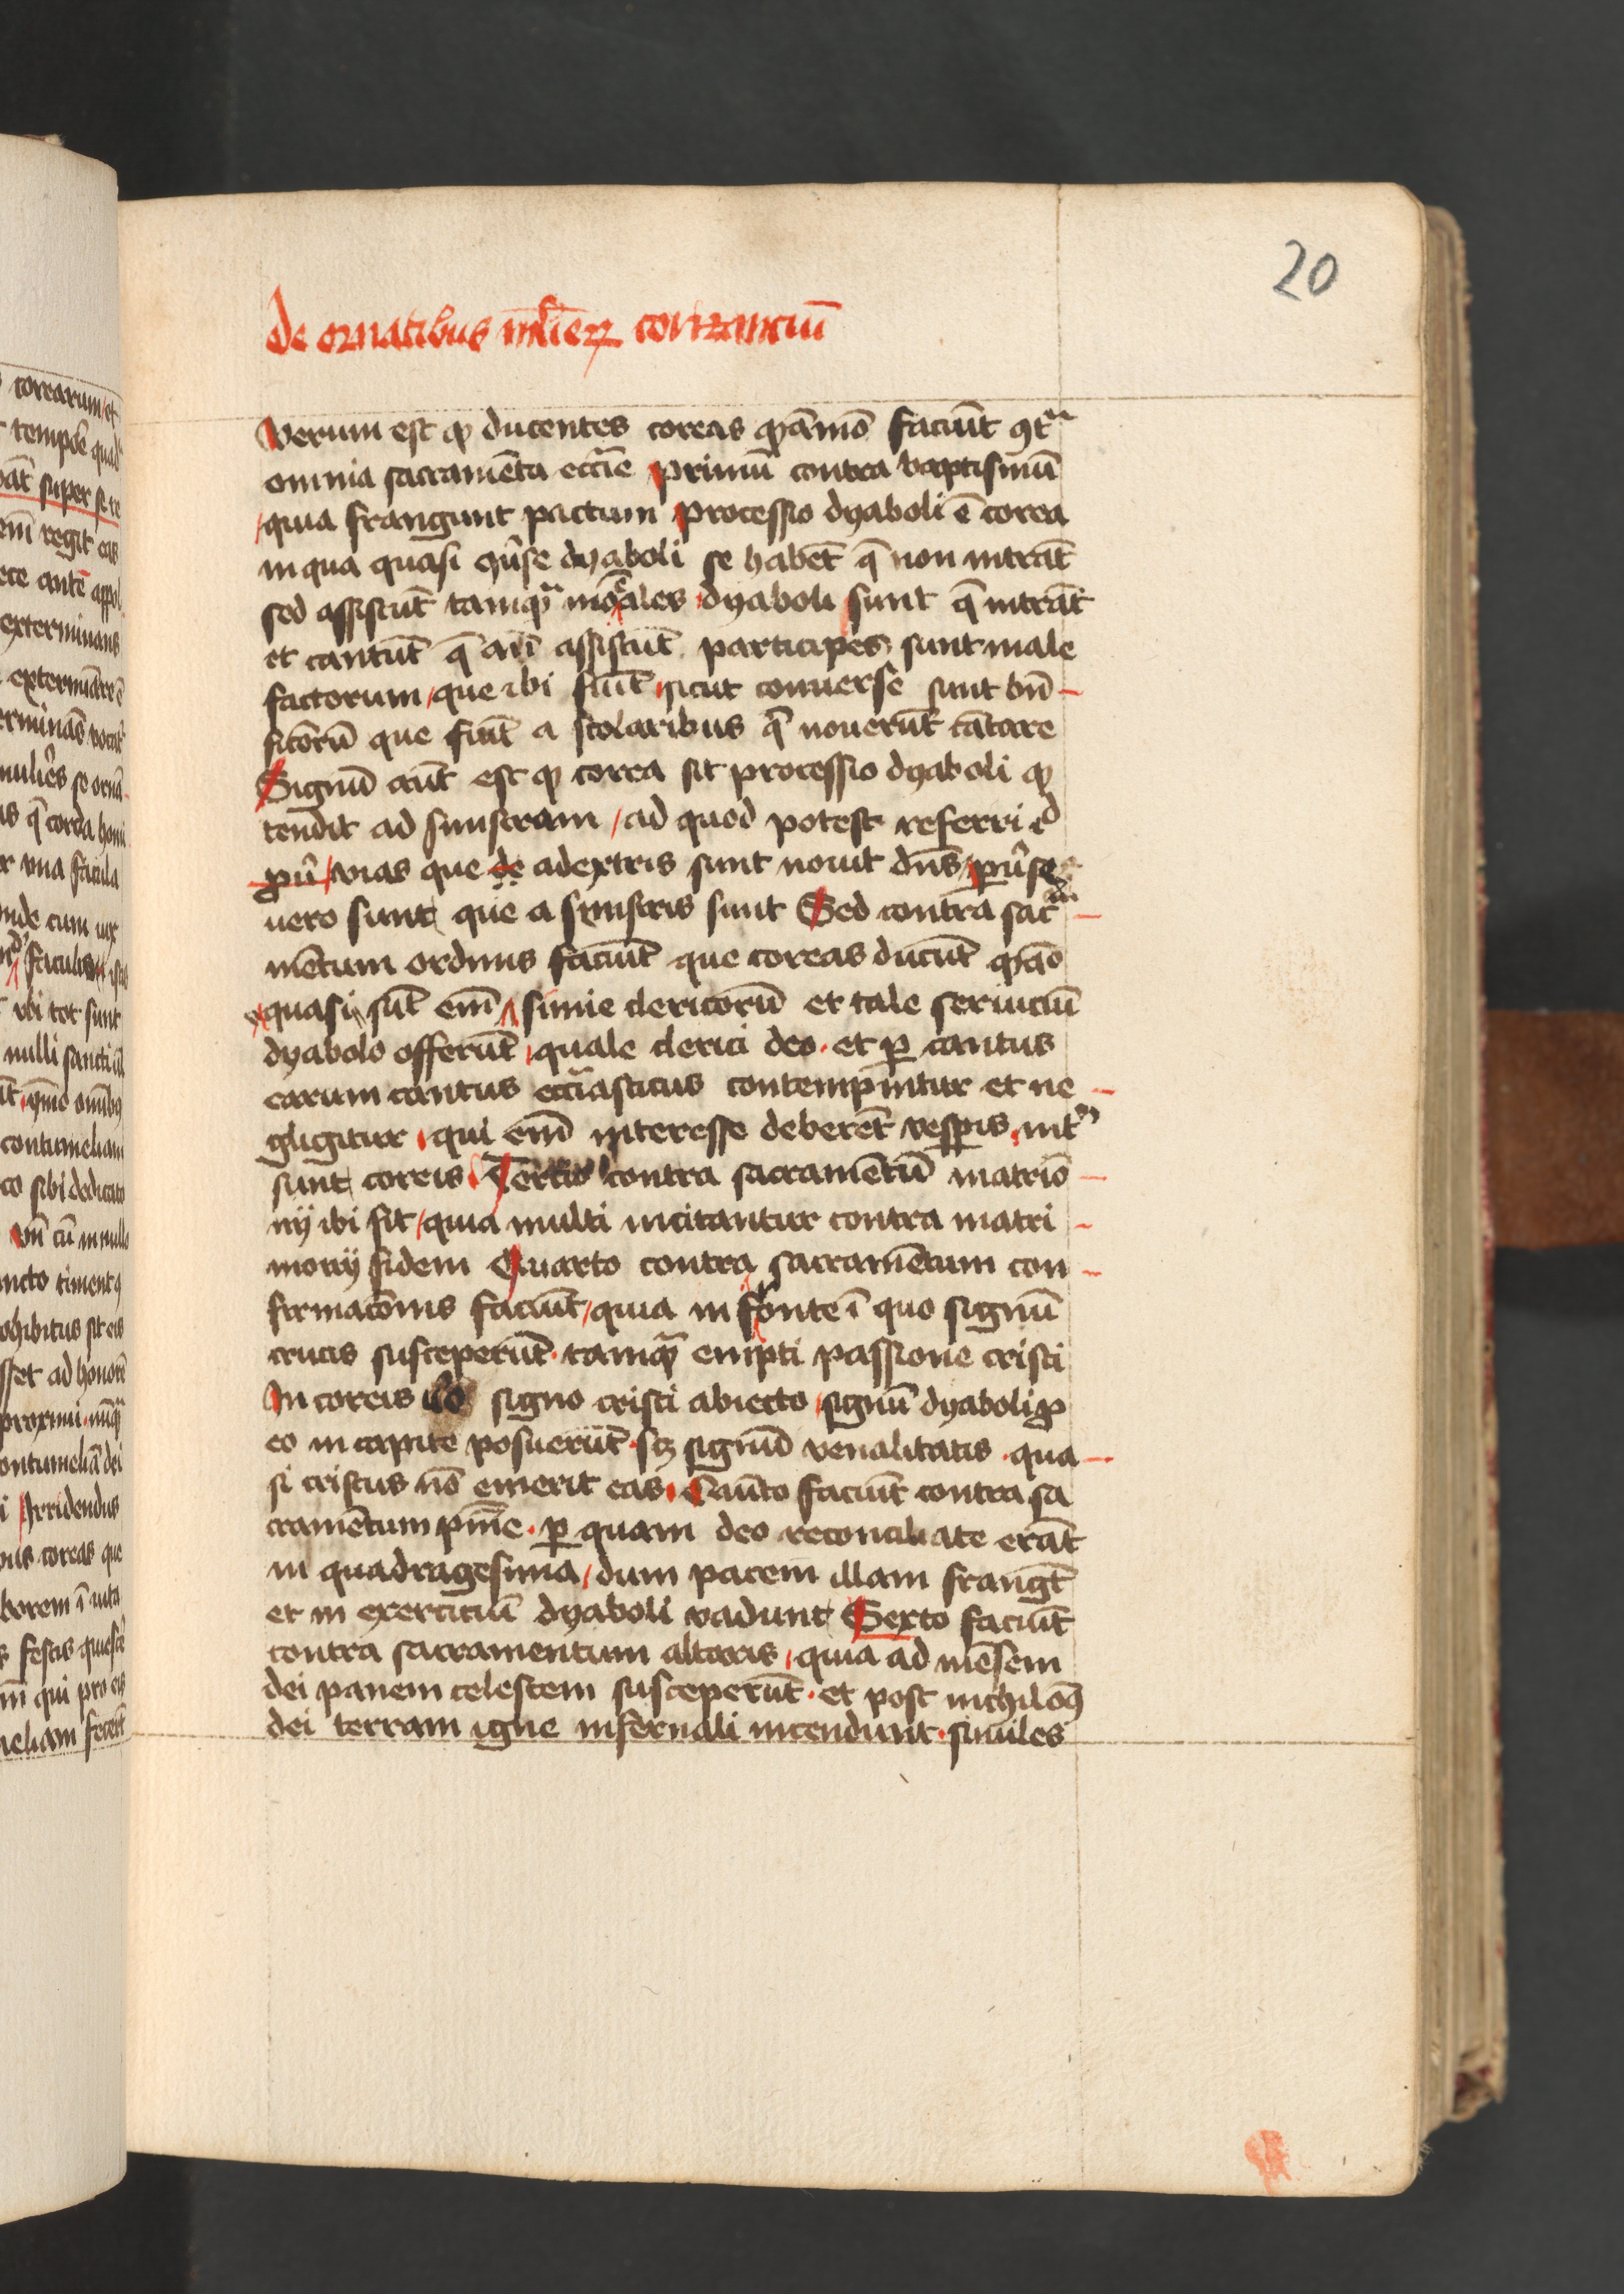 20
de ornatibus mul̅ieꝝ corizanciū
Verum est ꝙ ducentes coreas qͦdāmō faciūt ꝯtᵃ
omnia sacramēta eccīe primū contra baptismū
quia frangunt pactum processio dyaboli ē corea
in qua quasi ꝯūse dyaboli se habēt q̄ non intrāt
sed assistūt tamqᷓ moīales dyaboli sunt q̄ intrāt
et cantūt q̄ aūt assistūt participes sunt male
factorum que ibi fiūt sicut conuerse sunt bn̄
ficiorū que fiūt a scolaribus qͥ nouerūt cātare
Signū aūt est ꝙ corea sit processio dyaboli ꝙ
tendit ad sinistram ad quod potest referri id
pū vias que de adextris sunt nouit dn̄s puͥse
uero sunt que a sinistris sunt Sed contra sacᵃ
mētum ordinis faciūt que coreas ducūt
quasi sūt em̄ simie clericorū et tale seruiciū
dyabolo offerūt quale clerici deo et ꝑ cantus
earum cantus ecciāsticus contempnitur et ne
gligitur qui em̄ interesse deberēt vesperis int
sunt coreis Tertio contra sacramentū matrio
nij ibi fit quia multi incitantur contra matri
monij fidem Quarto contra sacramētum con
firmacōnis faciūt quia in fronte ī quo signū
crucis susceperūt tamqᷓ empti passione cristi
In coreis v̄o signo cristi abiecto signū dyaboli ꝓ
eo in capite posuerūt sꝫ signū venalitatis qua
si cristus nō emerit eas Quīto faciūt contra sa
cramētum pnīe ꝑ quam deo reconciliate erāt
in quadragesima dum pacem illam frangūt
et in exercitiū dyaboli vadunt Sexto faciūt
contra sacramentum altaris quia ad mēsem
dei panem celestem susceperūt et post nichilomꝰ
dei terram igne infernali incendunt similes